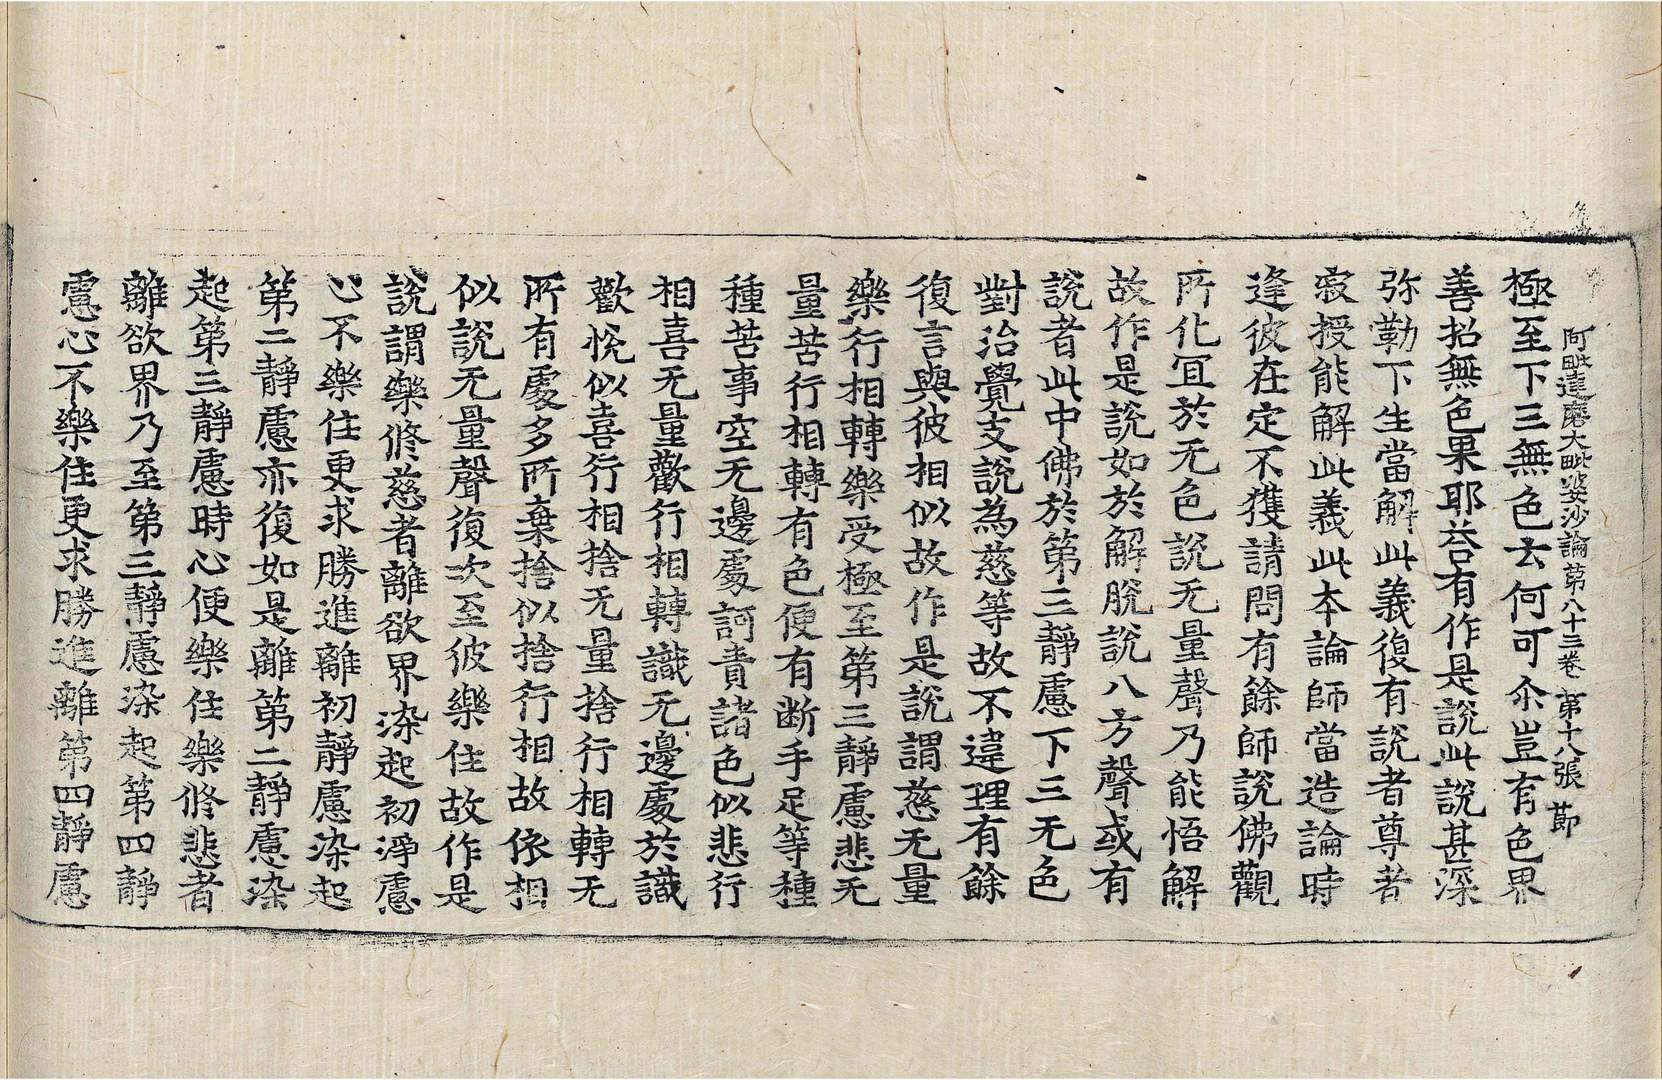 阿毗達磨大毗婆沙論第八十三卷 第十八張 節
極至下三無色去何可尒豈有色界
善招無色果耶荅有作是說此說甚深
弥勒下生當解此義復有說者尊者
寂授能解此義此本論師當造論時
逢彼在定不獲請問有餘師說佛觀
所化冝於无色說无量聲乃能悟解
故作是說如於解脫說八方聲或有
說者此中佛於第三靜慮下三无色
對治覺支說為慈等故不違理有餘
復言與彼相似故作是說謂慈无量
樂行相轉樂受極至第三靜慮悲无
量苦行相轉有色便有断手足等種
種苦事空无邊處訶責諸色似悲行
相喜无量歡行相轉識无邊處於識
歡悅似喜行相捨无量捨行相轉无
所有處多所棄捨似捨行相故依相
似說无量聲復次至彼樂住故作是
說謂樂修慈者離欲界染起初淨慮
心不樂住更求勝進離初靜慮染起
第二靜慮亦復如是離第二靜慮染
起第三靜慮時心便樂住樂修悲者
離欲界乃至第三靜慮染起第四靜
慮心不樂住更求勝進離第四靜慮